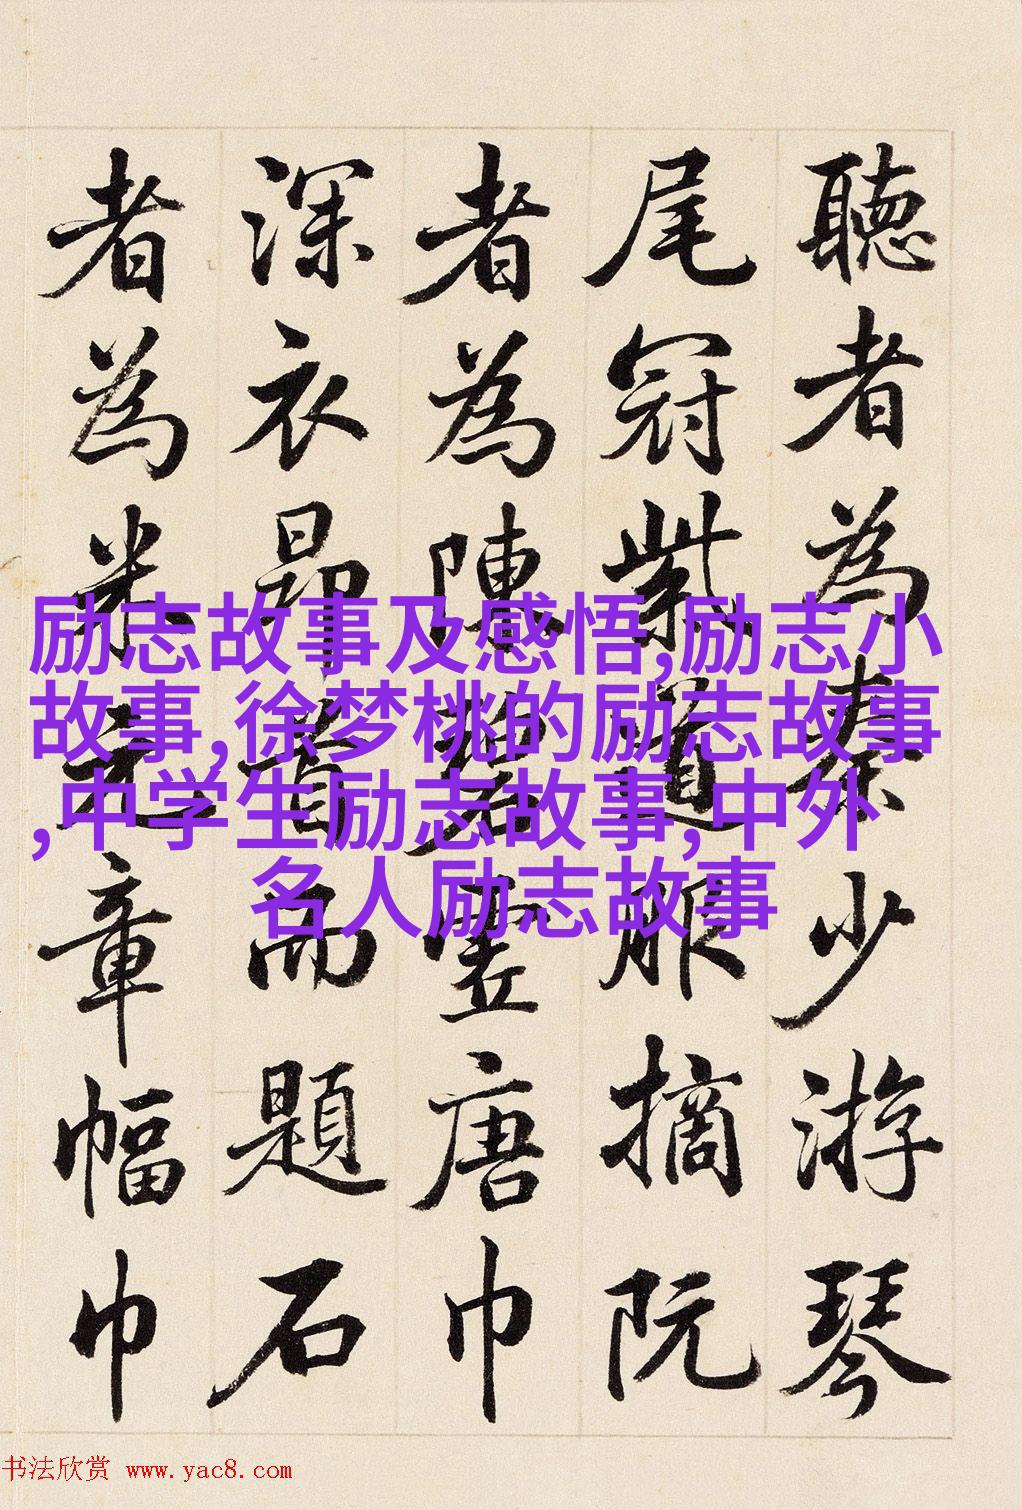 聽者為秦少游琴
尾冠紫道服摘阮
者為陳碧虛唐巾
深衣昂首而題石
者為米元章幅巾
励志故事及感悟,励志小
故事,徐梦桃的励志故事
,中学生励志故事,中外
名人励志故事
书法欣赏 www.yac8.com